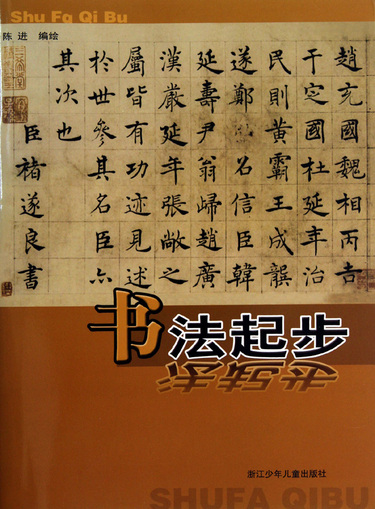 Shu Fa Qi Bu
陈进 编绘
趙充國魏相丙吉
于定國杜延年治
民則黃霸王成龔
遂鄭召信臣韓
延壽尹翁歸趙廣
漢嚴延年張敞之
屬皆有功迹見述
於世參其名臣亦
其次也
臣褚遂良書
书法起步
法起步
浙江少年儿童出版社
SHUFA QIBU